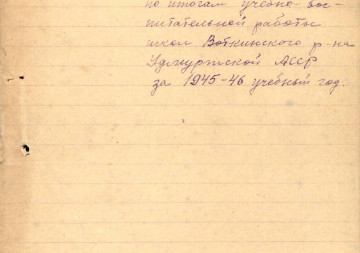 по итогам учебно-вос-
питательной работы
школ Воткинского р-на
Удмуртской АССР
за 1945-46 учебный год.